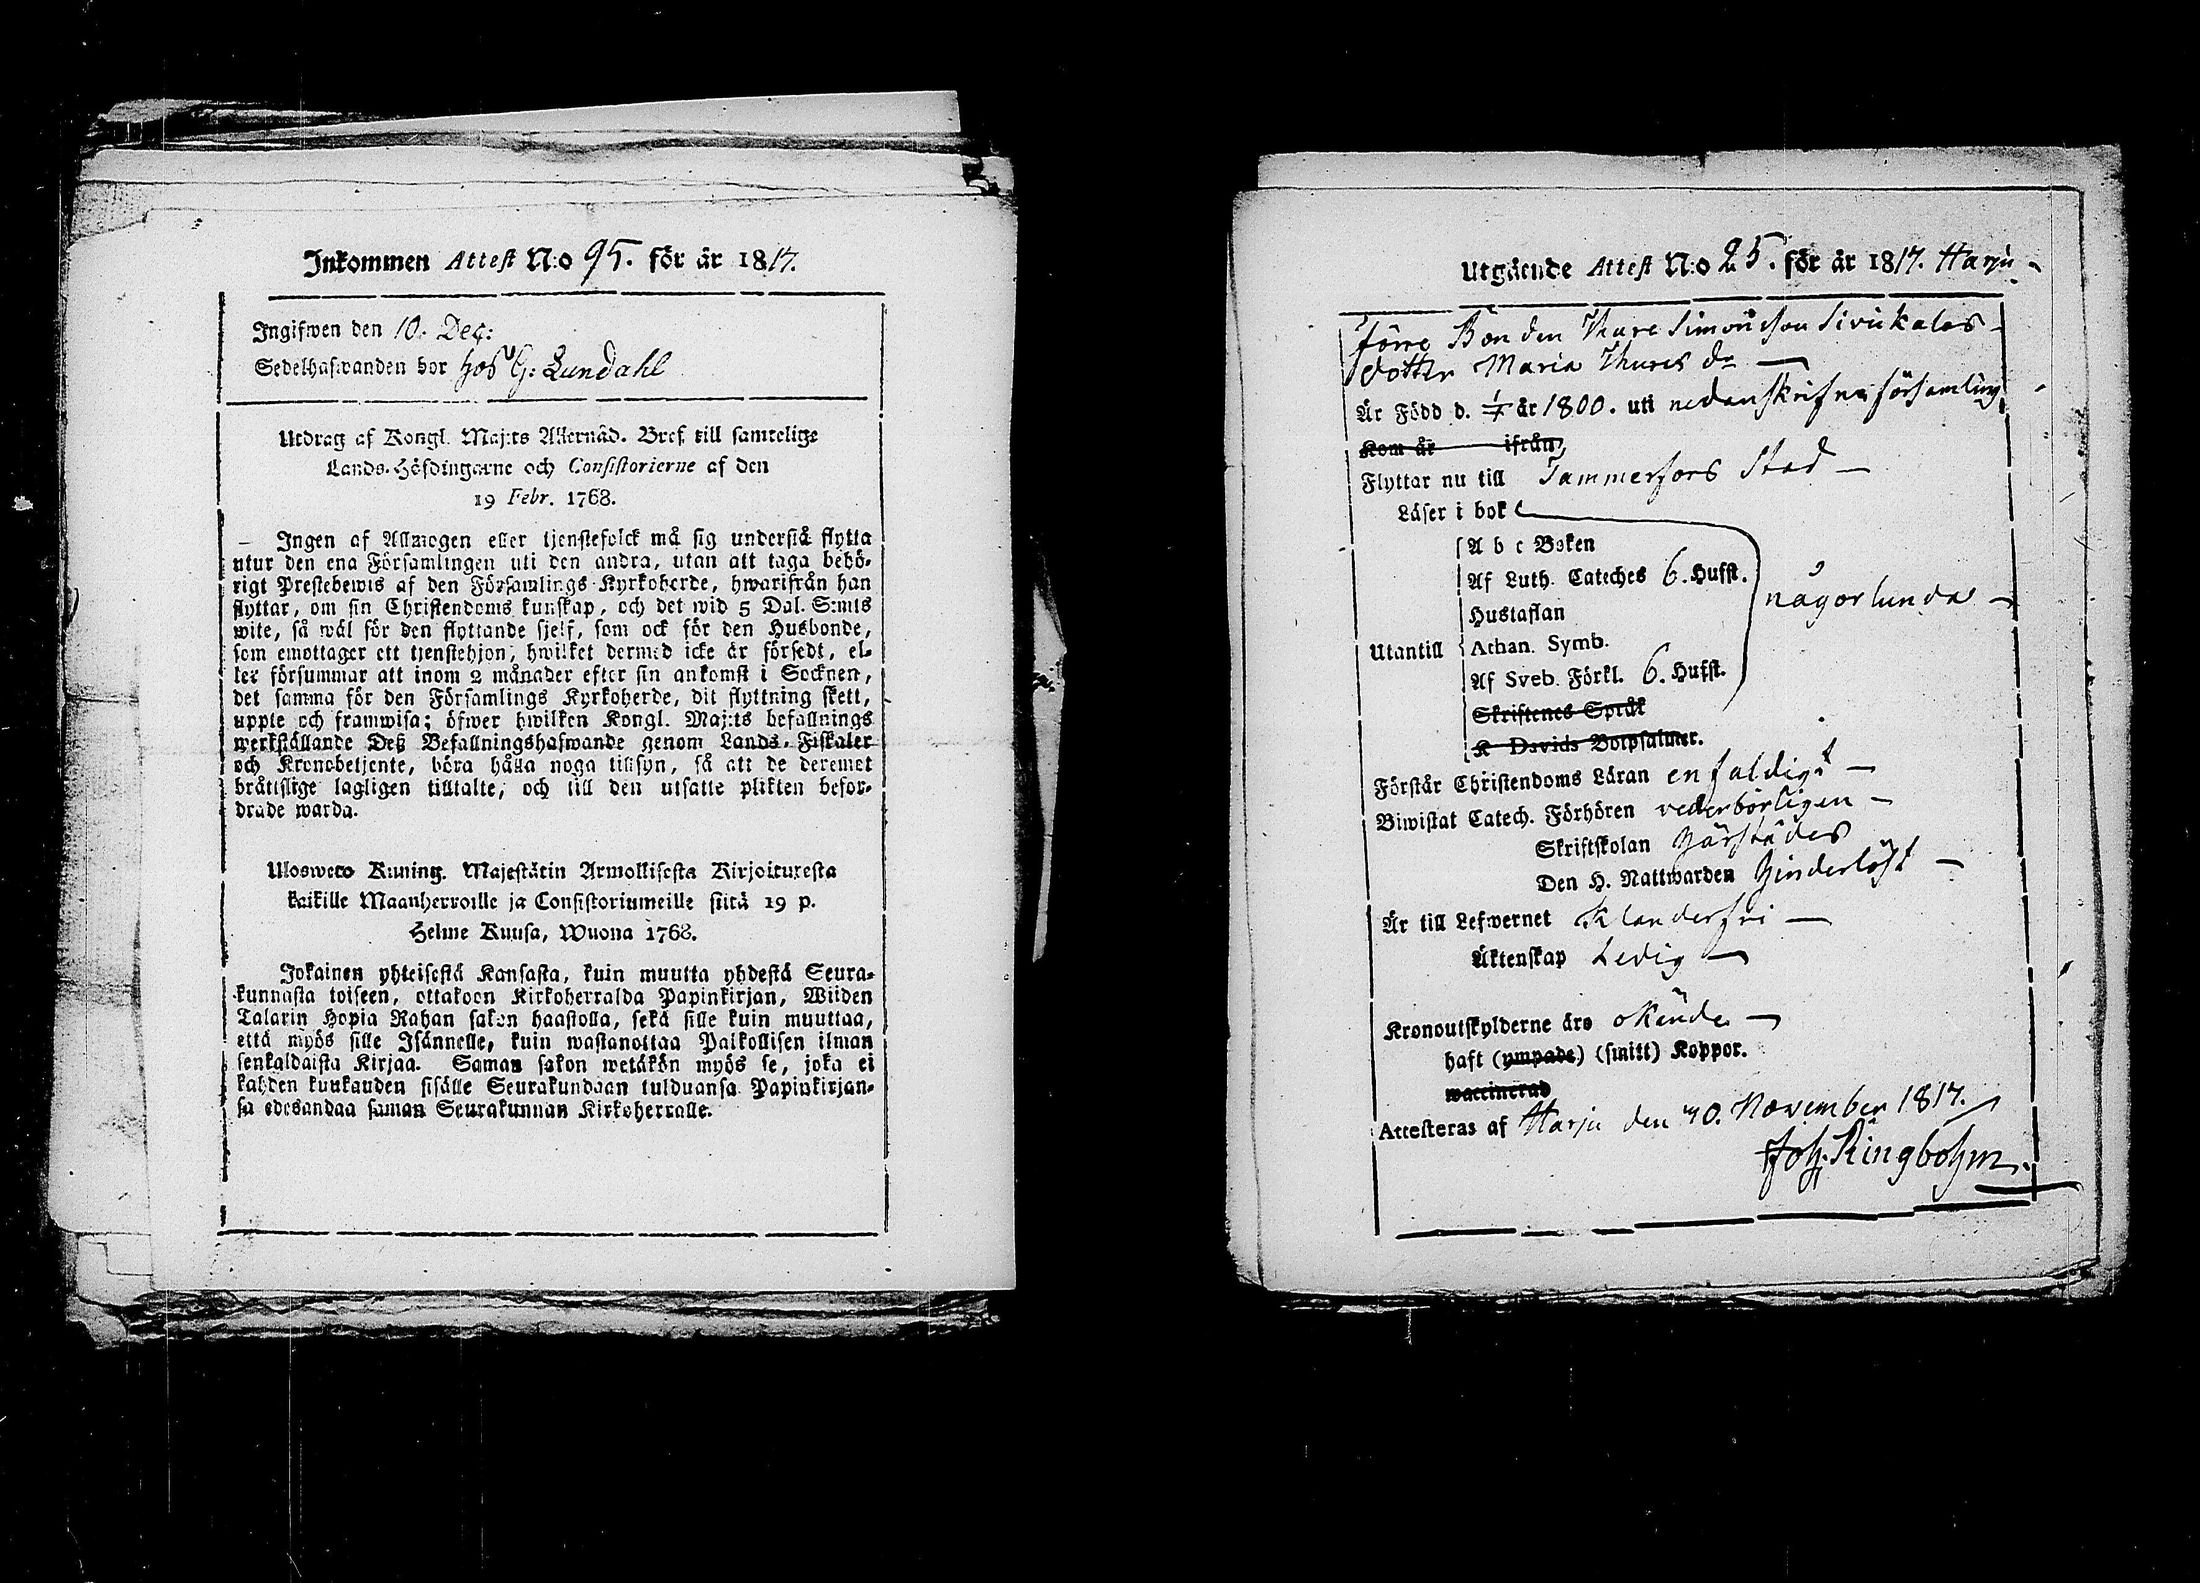 Inkommen Attest N:o 95. för år 1817.
Ingifwen den 10. Dec:
Sedelhafwanden bor hos G: Lundahl
Utdrag af Kongl. Maj:ts Allernåd. Bref till samtelige
Lands-Höfdingarne och Consistorierne af den
19 Febr. 1768.
Ingen af Allmogen eller tjenstefolck må sig understå flytta
utur den ena Församlingen uti den andra, utan att taga behö-
rigt Prestebewis af den Församlings Kyrkoherde, hwarifrån han
flyttar, om sin Christendoms kunskap, och det wid 5 Dal. S:mts
wite, så wäl för den flyttande sjelf, som ock för den Husbonde,
som emottager ett tjenstehjon, hwilket dermed icke är försedt, el-
ler försummar att inom 2 månader efter sin ankomst i Socknen,
det samma för den Församlings Kyrkoherde, dit flyttning skett,
uppte och framwisa; öfwer hwilken Kongl. Maj:ts befallnings
werkställande Deß Befallningshafwande genom Lands-Fiskaler
och Kronobetjente, böra hålla noga tillsyn, så att de deremot
bråttslige lagligen tilltalte, och till den utsatte plikten befor-
drade warda.
Ulosweto Kuning. Majestätin Armollisesta Kirjoituxesta
kaikille Maanherroille ja Consistoriumeille siitä 19 p.
Helme Kuusa, Wuona 1768.
Jokainen yhteisestä Kansasta, kuin muutta yhdestä Seura-
kunnasta toiseen, ottakoon Kirkoherralda Papinkirjan, Wiiden
Talarin Hopia Rahan sakon haastolla, sekä sille kuin muuttaa,
että myös sille Isännelle, kuin wastanottaa Palkollisen ilman
senkaldaista Kirjaa. Saman sakon wetäkön myös se, joka ei
kahden kuukauden sisälle Seurakundaan tulduansa Papinkirjan-
sa edesandaa saman Seurakunnan Kirkoherralle.
Utgående Attest N:o 25. för år 1817. Harju
förre Bonden Thure Simonsson Sivukalas
dotter Maria Thures dr
Är Född d. 1/7 år 1800. uti nedanskrifne församling
Kom år ifrån
Flyttar nu till Tammerfors Stad
Läser i bok
A b c Boken
Af Luth. Cateches 6. Hufst.
någorlunda
Hustaflan
Utantill Athan. Symb.
Af Sveb. Förkl. 6. Hufst.
Skriftenes Språk
K Davids Botpsalmer.
Förstår Christendoms Läran enfaldigt
Biwistat Catech. Förhören vederbörligen
Skriftskolan härstädes
Den H. Nattwarden hinderlöst
Är till Lefwernet Klanderfri
Äktenskap Ledig
Kronoutskylderne äro okända
haft (ympade) (smitt) Koppor.
waccinerad
Attesteras af Harju den 30. November 1817.
Joh. Ringbohm.